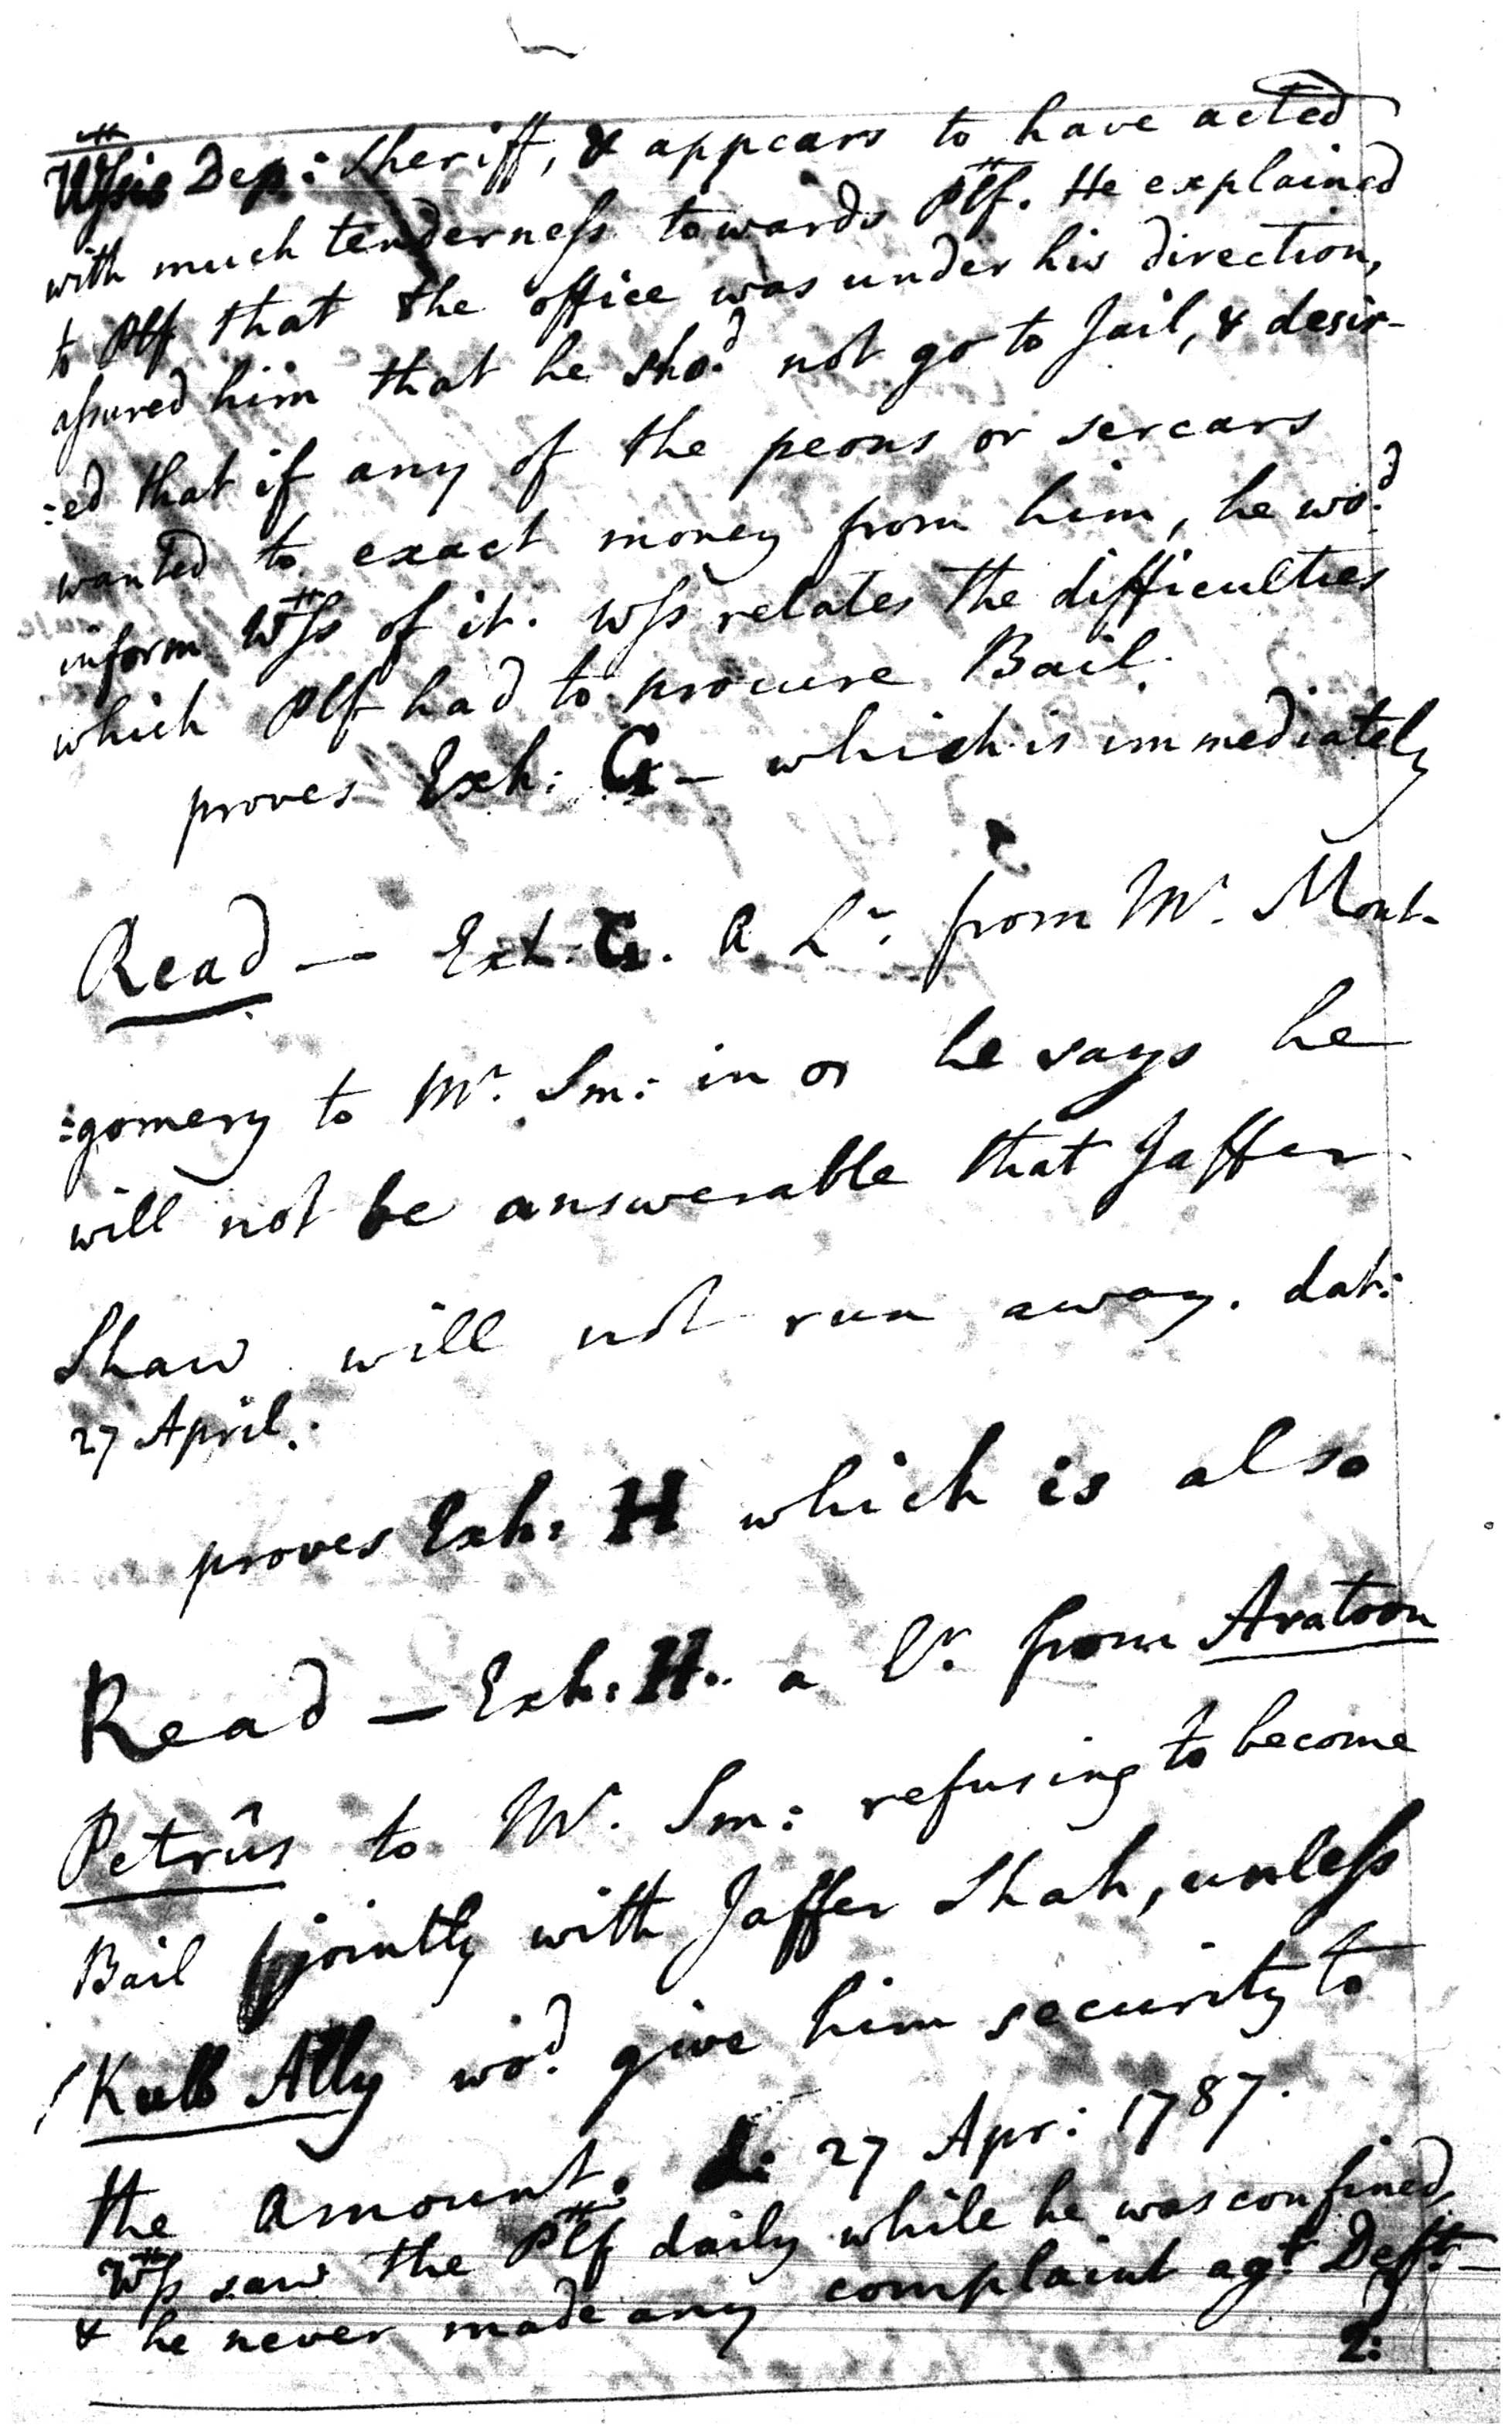 Wss is Dep: Sheriff, & appears to have acted
with much tenderness towards Plf. He explained
to Plf that the office was under his direction,
assured him that he sho.d not go to Jail, & desir-
:ed that if any of the peons or sercars
wanted to exact money from him, he wo.d
inform Wss of it. Wss relates the difficulties
which Plf had to procure Bail.
proves Exh: G - which is immediately
Read — Exh. G. A Lr. from Mr. Mont-
:gomery to Mr. Sm: in or he says he
will not be answerable that Jaffer
Shaw will not run away. dat:
27 April.
proves Exh: H which is also
Read — Exh: H. a lr. from Aratoon
Petrûs to Mr. Sm: refusing to become
Bail jointly with Jaffer Shah, unless
Kulb Ally wo.d give him security to
the amount. d: 27 Apr: 1787.
Wss saw the Plf daily while he was confined,
& he never made any complaint ag.t Deft —
2: